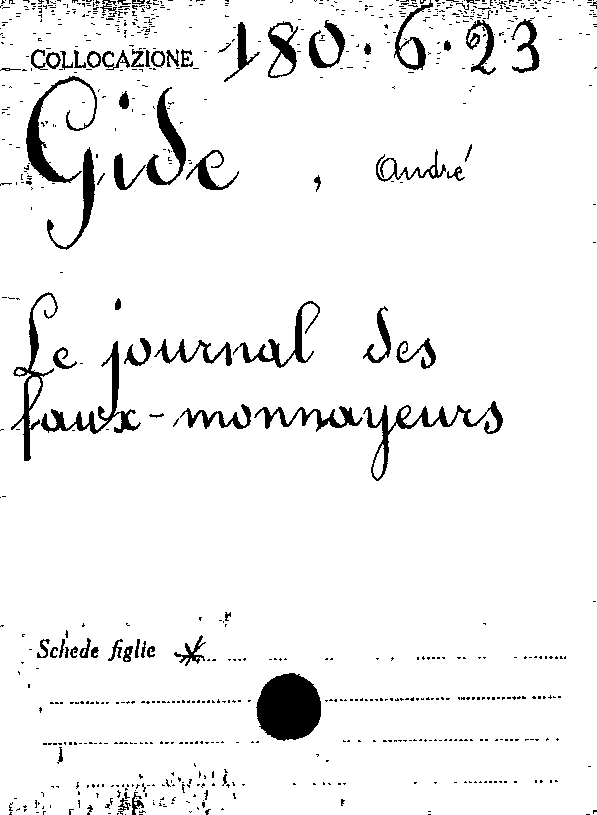 COLLOCAZIONE 180.6.23
Gide, André
Le journal des
faux-monnayeurs
Schede figlie